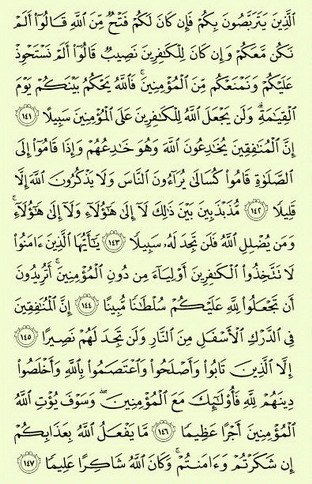 الَّذِينَ يَتَرَبَّصُونَ بِكُمْ فَإِن كَانَ لَكُمْ فَتْحٌ مِّنَ اللَّهِ قَالُوا أَلَمْ
نَكُن مَّعَكُمْ وَإِن كَانَ لِلْكَافِرِينَ نَصِيبٌ قَالُوا أَلَمْ نَسْتَحْوِذْ
عَلَيْكُمْ وَنَمْنَعْكُم مِّنَ الْمُؤْمِنِينَ ۚ فَاللَّهُ يَحْكُمُ بَيْنَكُمْ يَوْمَ
الْقِيَامَةِ ۗ وَلَن يَجْعَلَ اللَّهُ لِلْكَافِرِينَ عَلَى الْمُؤْمِنِينَ سَبِيلًا ١٤١
إِنَّ الْمُنَافِقِينَ يُخَادِعُونَ اللَّهَ وَهُوَ خَادِعُهُمْ وَإِذَا قَامُوا إِلَى
الصَّلَوٰةِ قَامُوا كُسَالَىٰ يُرَاءُونَ النَّاسَ وَلَا يَذْكُرُونَ اللَّهَ إِلَّا
قَلِيلًا ١٤٢ مُّذَبْذَبِينَ بَيْنَ ذَٰلِكَ لَا إِلَىٰ هَٰؤُلَاءِ وَلَا إِلَىٰ هَٰؤُلَاءِ ۚ
وَمَن يُضْلِلِ اللَّهُ فَلَن تَجِدَ لَهُ سَبِيلًا ١٤٣ يَا أَيُّهَا الَّذِينَ آمَنُوا
لَا تَتَّخِذُوا الْكَافِرِينَ أَوْلِيَاءَ مِن دُونِ الْمُؤْمِنِينَ ۚ أَتُرِيدُونَ
أَن تَجْعَلُوا لِلَّهِ عَلَيْكُمْ سُلْطَانًا مُّبِينًا ١٤٤ إِنَّ الْمُنَافِقِينَ
فِي الدَّرْكِ الْأَسْفَلِ مِنَ النَّارِ وَلَن تَجِدَ لَهُمْ نَصِيرًا ١٤٥
إِلَّا الَّذِينَ تَابُوا وَأَصْلَحُوا وَاعْتَصَمُوا بِاللَّهِ وَأَخْلَصُوا
دِينَهُمْ لِلَّهِ فَأُولَٰئِكَ مَعَ الْمُؤْمِنِينَ ۖ وَسَوْفَ يُؤْتِ اللَّهُ
الْمُؤْمِنِينَ أَجْرًا عَظِيمًا ١٤٦ مَّا يَفْعَلُ اللَّهُ بِعَذَابِكُمْ
إِن شَكَرْتُمْ وَآمَنتُمْ ۚ وَكَانَ اللَّهُ شَاكِرًا عَلِيمًا ١٤٧